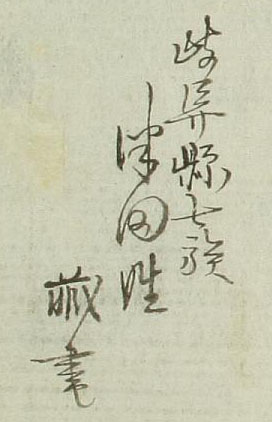 岐阜縣士族
津田姓
蔵書